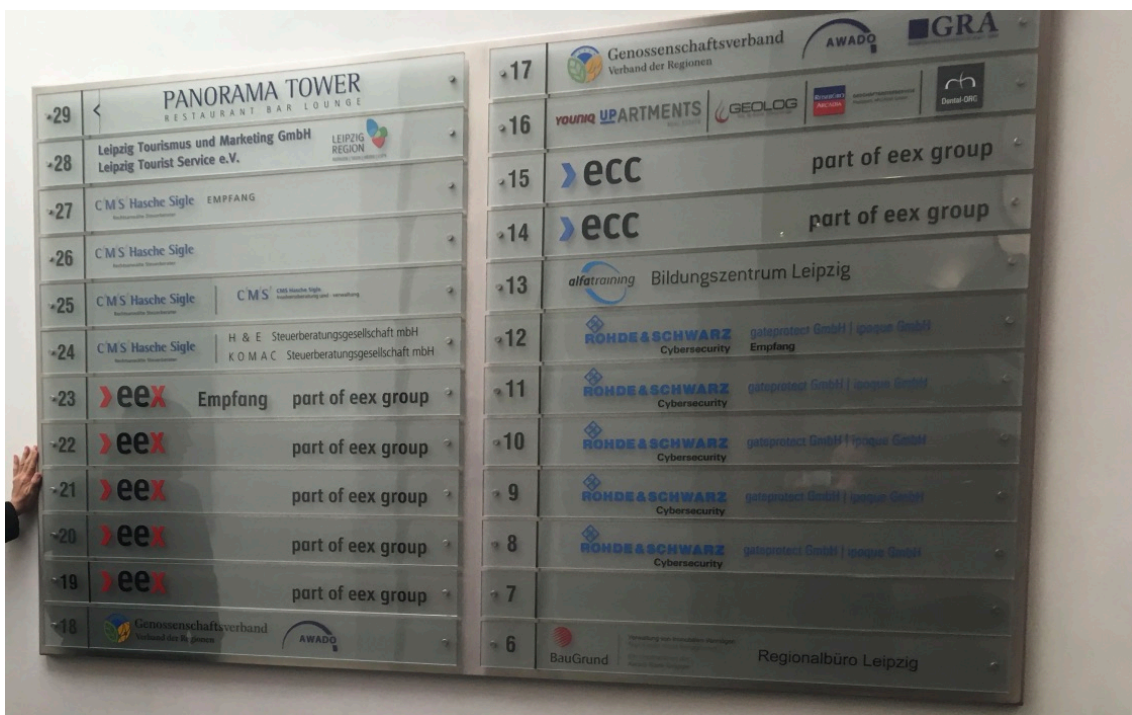 29 < PANORAMA TOWER
RESTAURANT BAR LOUNGE
28 Leipzig Tourismus und Marketing GmbH LEIPZIG
Leipzig Tourist Service e.V. REGION
27 C'M'S' Hasche Sigle EMPFANG
26 C'M'S' Hasche Sigle
25 C'M'S' Hasche Sigle C'M'S' CMS Hasche Sigle
24 C'M'S' Hasche Sigle H & E Steuerberatungsgesellschaft mbH
KOMAC Steuerberatungsgesellschaft mbH
23 eex Empfang part of eex group
22 eex part of eex group
21 eex part of eex group
20 eex part of eex group
19 eex part of eex group
18 Genossenschaftsverband AWADO
Verband der Regionen
17 Genossenschaftsverband AWADO GRA
Verband der Regionen
16 YOUNIQ UPARTMENTS GEOLOG Dental-ORG
15 ecc part of eex group
14 ecc part of eex group
13 alfatraining Bildungszentrum Leipzig
12 ROHDE & SCHWARZ gateprotect GmbH | ipoque GmbH
Cybersecurity Empfang
11 ROHDE & SCHWARZ gateprotect GmbH | ipoque GmbH
Cybersecurity
10 ROHDE & SCHWARZ gateprotect GmbH | ipoque GmbH
Cybersecurity
9 ROHDE & SCHWARZ gateprotect GmbH | ipoque GmbH
Cybersecurity
8 ROHDE & SCHWARZ gateprotect GmbH | ipoque GmbH
Cybersecurity
7
6 BauGrund Regionalbüro Leipzig